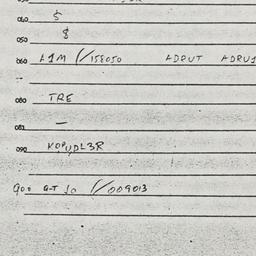 060 $
050 $
060 A1M //158050 ADRUT ADRU1
080 TRE
08
090 KOPUDL3R
900 G-T Jo //009013